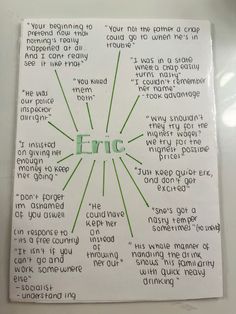 "Your beginning to
pretend now that
nothing's really
happened at all.
And I can't really
see it like that"
"Your not the father a chap
could go to when he's in
trouble"
"You killed
them
both"
"I was in a state
when a chap easily
turns nasty"
"I couldn't remember
her name"
- took advantage
"He was
our police
inspector
alright"
"Why shouldn't
they try for the
highest wages?
We try for the
highest possible
prices"
"I insisted
on giving her
enough
money to keep
her going"
Eric
"Just keep quiet Eric,
and don't get
excited"
"Don't forget
im ashamed
of you aswell
"He
could have
kept her
on
instead
of
throwing
her out"
"She's got a
nasty temper
sometimes"
(in response to
"its a free country)
"It isn't if you
can't go and
work somewhere
else"
- socialist
- understanding
"His whole manner of
handling the drink
shows his familiarity
with quick heavy
drinking"